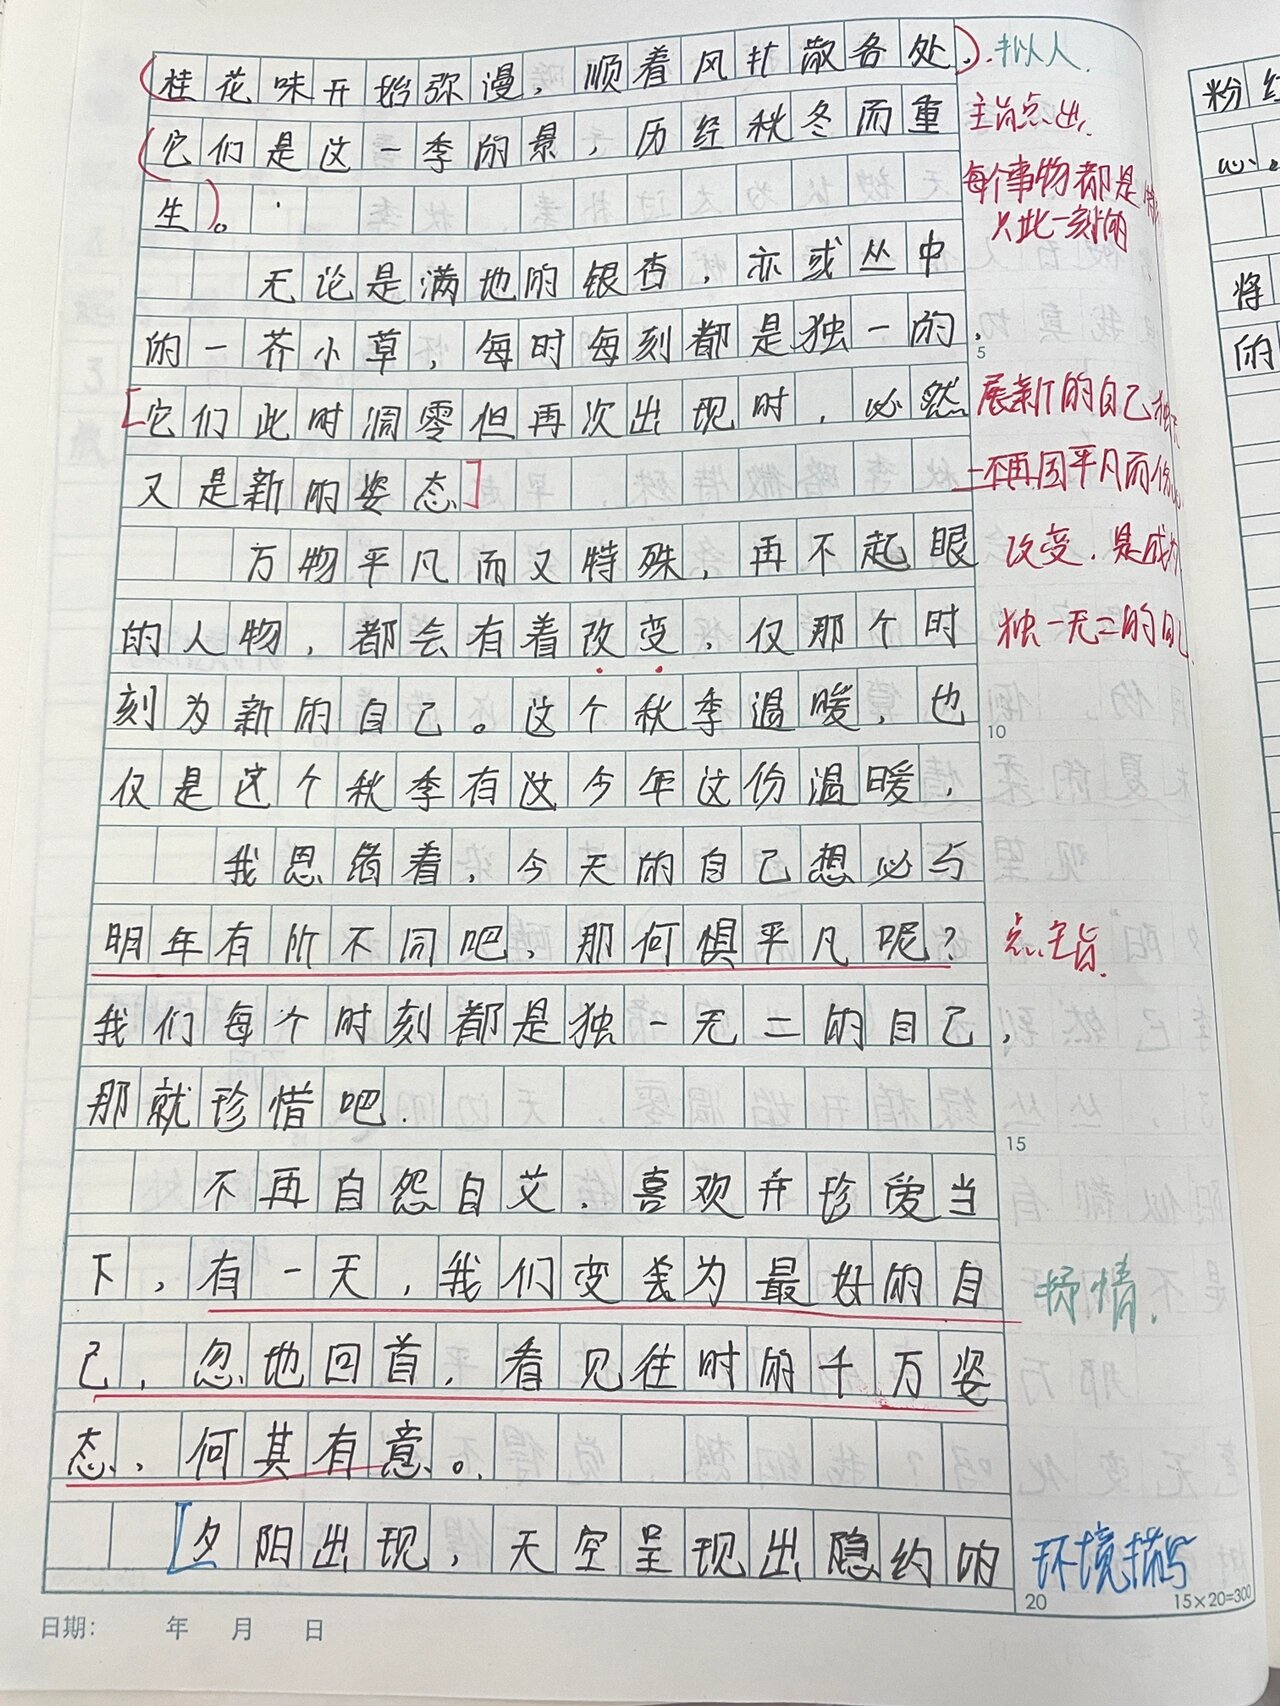 桂花味开始弥漫，顺着风扑散各处，
拟人.
它们是这一季的景，历经秋冬而重
主旨点出.
生。
每个事物都是
此一刻的
无论是满地的银杏，亦或丛中
的一芥小草，每时每刻都是独一的.
5
它们此时凋零但再次出现时，必然
展新的自己
又是新的姿态
一不再因平凡而
万物平凡而又特殊，再不起眼
改变.是成为
的人物，都会有着改变，仅那个时
独一无二的自己
刻为新的自己。这个秋季温暖，也
10
仅是这个秋季有这今年这份温暖，
我思绪着，今天的自己想必与
明年有所不同吧，那何惧平凡呢？
点主旨.
我们每个时刻都是独一无二的自己，
那就珍惜吧.
15
不再自怨自艾.喜欢并珍爱当
下，有一天，我们变装为最好的自
抒情.
己，忽地回首，看见往时的千万姿
态、何其有意。
夕阳出现，天空呈现出隐约的
环境描写
20
15×20=300
日期： 年 月 日
粉
心。
将
的